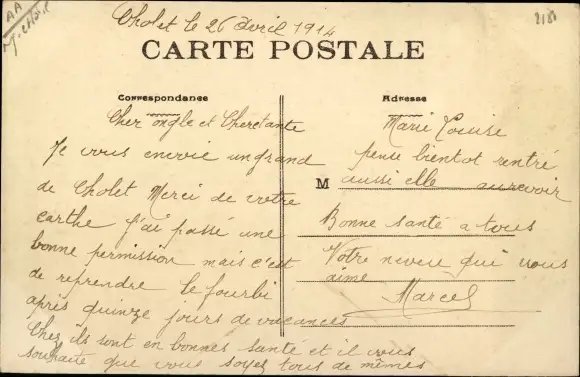 Cholet le 26 Avril 1914
CARTE POSTALE
Correspondance
Cher ongle et Chertante
Je vous envoie un grand
de Cholet Merci de votre
carthe j'ai passé une
bonne permission mais c'est
de reprendre le fourbi
après quinze jours de vacances
Chez ils sont en bonnes santé et il vous
souhaite que vous soyez tous de mêmes
Adresse
Marie Louise
pense bientot rentré
M aussi elle aurevoir
Bonne santé a tous
Votre neveu qui vous
aime
Marcel
AA
2181